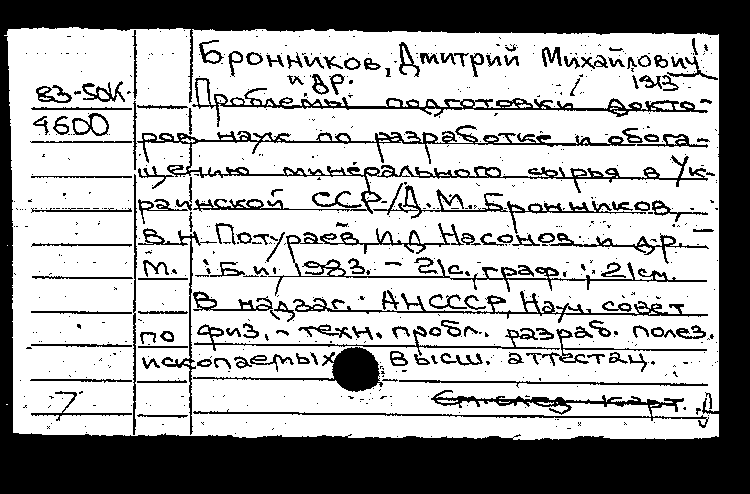 Бронников, Дмитрий Михайлович
и др. 1913
83-50К- Проблемы подготовки докто-
4600 ров наук по разработке и обога-
щению минерального сырья в Ук-
раинской ССР / Д.М. Бронников,
В.Н Потураев, И.Д Насонов и др. –
М. : Б.и., 1983. – 21с., граф. ; 21см.
В надзаг.: АН СССР, Науч. совет
по физ.-техн. пробл. разраб. полез.
ископаемых Высш. аттестац.
7 См. след карт.